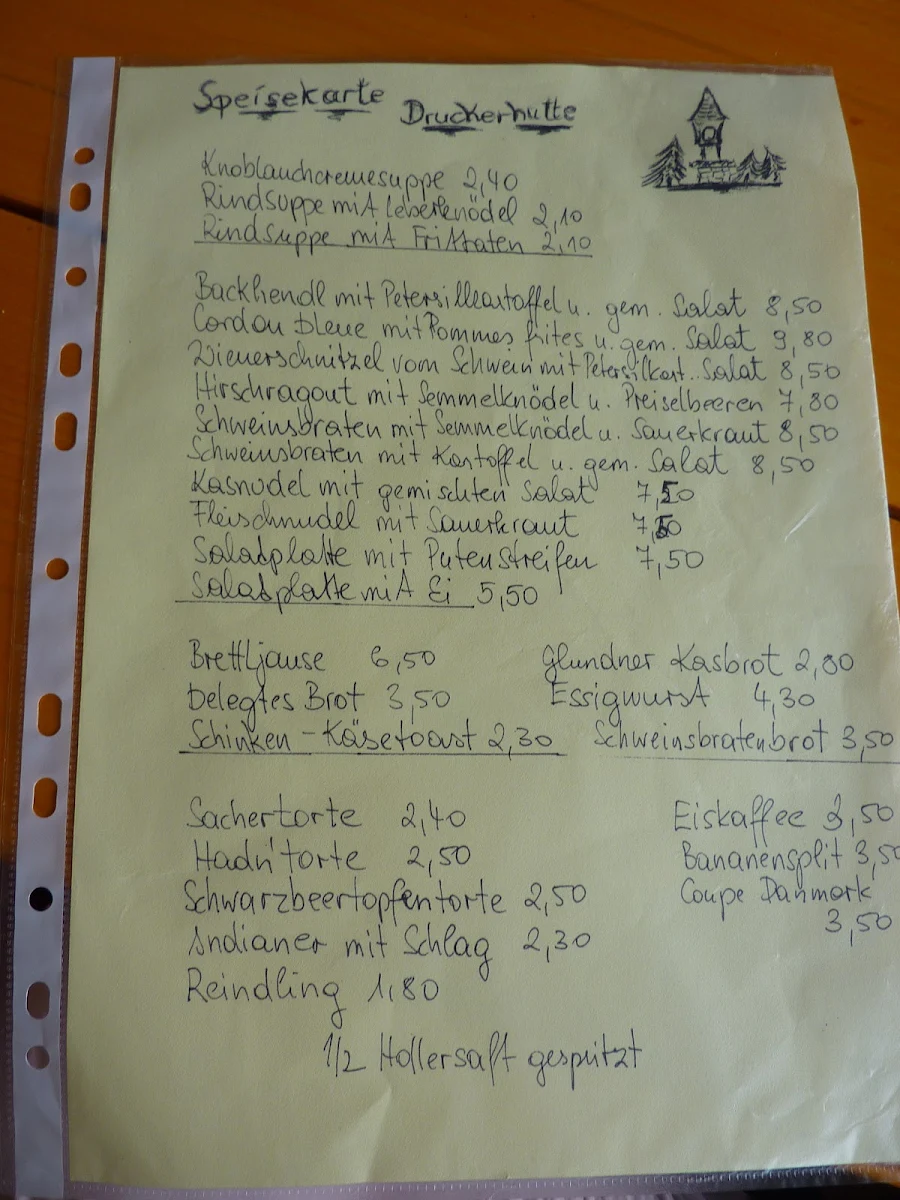 Speisekarte Druckerhütte
Knoblauchcremesuppe 2,40
Rindsuppe mit Leberknödel 2,10
Rindsuppe mit Frittaten 2,10
Backhendl mit Petersilleartoffel u. gem. Salat 8,50
Cordon bleue mit Pommes frites u. gem. Salat 9,80
Wienerschnitzel vom Schwein mit Petersilkart. Salat 8,50
Hirschragout mit Semmelknödel u. Preiselbeeren 7,80
Schweinsbraten mit Semmelknödel u. Sauerkraut 8,50
Schweinsbraten mit Kartoffel u. gem. Salat 8,50
Kasnudel mit gemischten Salat 7,50
Fleischnudel mit Sauerkraut 7,50
Salatplatte mit Putenstreifen 7,50
Salatplatte mit Ei 5,50
Brettljause 6,50
Belegtes Brot 3,50
Schinken-Käsetoast 2,30
Glundner Kasbrot 2,80
Essigwurst 4,30
Schweinsbratenbrot 3,50
Sachertorte 2,40
Hadn'torte 2,50
Schwarzbeertopfentorte 2,50
Indianer mit Schlag 2,30
Reindling 1,80
Eiskaffee 3,50
Bananensplit 3,50
Coupe Danmark
3,50
1/2 Hollersaft gespritzt